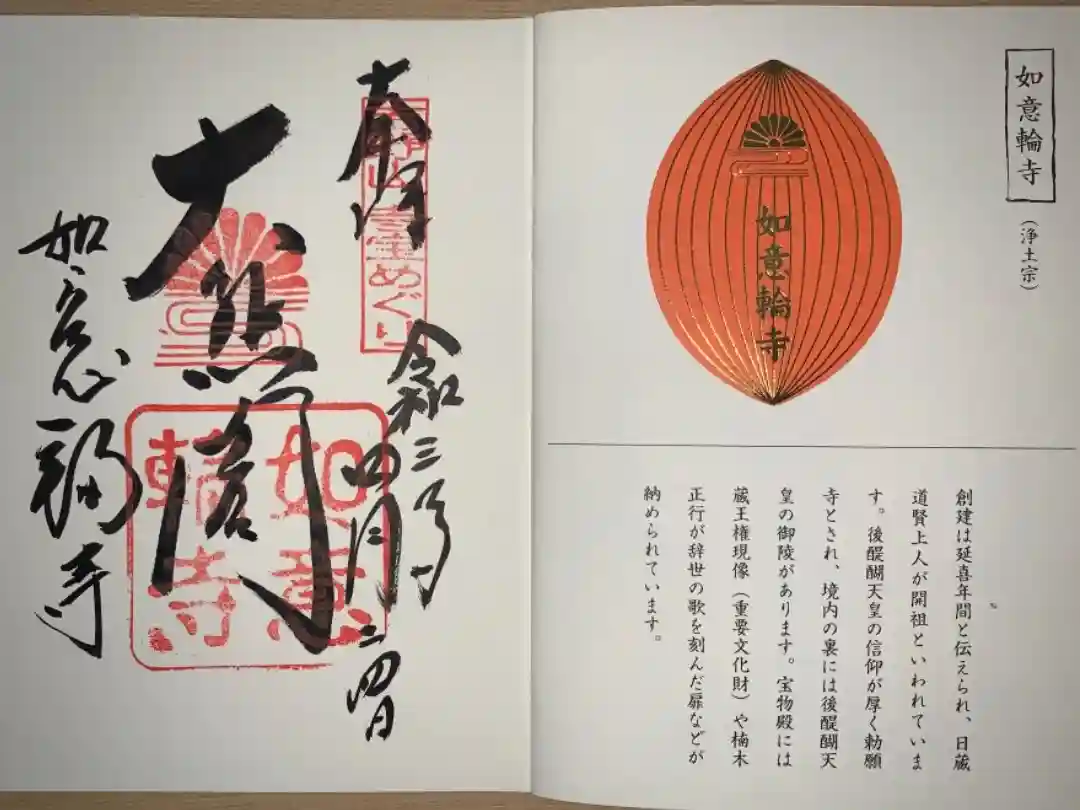 如意輪寺
（浄土宗）
如意輪寺
創建は延喜年間と伝えられ、日蔵
道賢上人が開祖といわれていま
す。後醍醐天皇の信仰が厚く勅願
寺とされ、境内の裏には後醍醐天
皇の御陵があります。宝物殿には
蔵王権現像（重要文化財）や楠木
正行が辞世の歌を刻んだ扉などが
納められています。
奉拝
めぐり
令和三年
四月二四日
如意
輪寺
如意輪寺